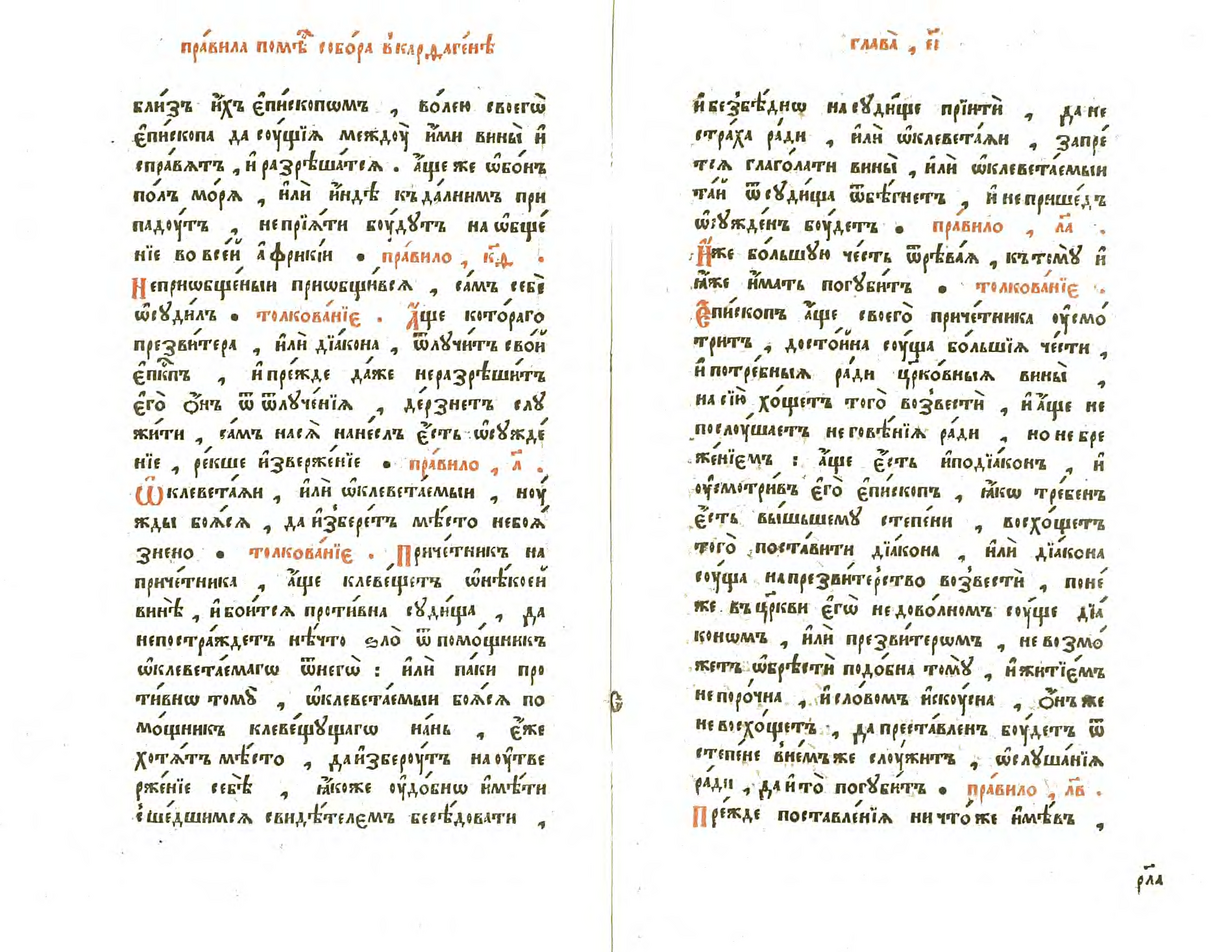 пра́вила помѣ́ⷭ собо́ра в̾карѳаге́нѣ
бли́зъ и҆́хъ є҆пи́скопѡмъ , во́лею своегѡ̀
є҆пи́скопа да сѹ́щїѧ междоу̀ и҆́ми вины̀ и҆
спра́вѧтъ , и҆ разрѣша́тсѧ . а҆́ще же ѡ҆бо́нъ
по́лъ мо́рѧ , и҆лѝ и҆́ндѣ къ да́лнимъ при
падоу́тъ , непрїѧ́ти боу́дутъ на ѡ҆бще́
нїе во все́й а҆фрикі́и • пра́вило , к҃ѳ .
Неприѡбще́ныи приѡбщи́всѧ , са́мъ себѐ
ѡ҆суди́лъ • толкова́нїе . А҆́ще кото́раго
презви́тера , и҆лѝ дїа́кона , ѿлучи́тъ сво́й
є҆пⷭ҇кпъ , и҆ пре́жде да́же неразрѣши́тъ
є҆го̀ ѻ҆́нъ ѿ ѿлуче́нїѧ , де́рзнетъ слу
жи́ти , са́мъ насѧ̀ нане́слъ є҆́сть ѡ҆сужде́
нїе , ре́кше и҆зверже́нїе • пра́вило , л҃ .
Ѡ҆клевета́ѧи , и҆лѝ ѡ҆клевета́емыи , ноу́
жды боѧ́сѧ , да и҆збере́тъ мѣ́сто небоѧ́
знено • толкова́нїе . Приче́тникъ на
приче́тника , а҆́ще клеве́щетъ ѡ҆нѣ́коей
винѣ̀ , и҆ бои́тсѧ проти́вна суди́ща , да
непостра́ждетъ нѣ́что ѕло̀ ѿ помо́щникъ
ѡ҆клевета́емагѡ ѿнегѡ̀ : и҆лѝ па́ки про
ти́внѡ томꙋ̀ , ѡ҆клевета́емыи боѧ́сѧ по
мо́щникъ клеве́щꙋщагѡ на́нь , є҆́же
хотѧ́тъ мѣ́сто , да и҆збероу́тъ на оу҆тве
рже́нїе себѣ̀ , ꙗ҆́коже оу҆до́бнѡ и҆мѣ́ти
сше́дшимсѧ свидѣ́телемъ бесѣ́довати ,
глава̀ , є҃і
и҆ без̾бѣ́днѡ на суди́ще прїитѝ , да не
стра́ха ра́ди , и҆лѝ ѡ҆клевета́ѧи , запре́
тсѧ глаго́лати вины̀ , и҆лѝ ѡ҆клевета́емыи
та́й ѿ суди́ща ѿбѣ́гнетъ , и҆ не прише́дъ
ѡ҆сужде́нъ боу́детъ • пра́вило , л҃а .
И҆́же бо́льшую че́сть ѿрѣва́ѧ , къ томꙋ̀ и҆
ꙗ҆́же и҆́мать погꙋби́тъ • толкова́нїе .
Є҆пи́скопъ а҆́ще своего̀ приче́тника оу҆смо́
тритъ , досто́йна соу́ща бо́льшїѧ че́сти ,
и҆ потре́бныѧ ра́ди цр҃ко́вныѧ вины̀ ,
на сїю̀ хо́щетъ того̀ воз̾вестѝ , и҆ а҆́ще не
послоу́шаетъ не говѣ́нїѧ ра́ди , но не бре
же́нїемъ : а҆́ще є҆́сть и҆подїа́конъ , и҆
оу҆смотри́въ є҆го̀ є҆пи́скопъ , ꙗ҆́кѡ тре́бенъ
є҆́сть вы́шьшемꙋ сте́пени , восхо́щетъ
того̀ поста́вити дїа́кона , и҆лѝ дїа́кона
соу́ща на презви́терство воз̾вестѝ , поне́
же въ цр҃кви є҆гѡ̀ не дово́лномъ соу́ще дїа́
кономъ , и҆лѝ презви́терѡмъ , не возмо́
жетъ ѡ҆брѣстѝ подо́бна томꙋ̀ , и҆ житїе́мъ
непоро́чна , и҆ сло́вомъ и҆скоу́сна , ѻ҆́нъ же
не восхо́щетъ , да преста́вленъ боу́детъ ѿ
сте́пене в̾не́мъже слоу́житъ , ѡ҆слуша́нїѧ
ра́ди , да и҆ то̀ погꙋби́тъ • пра́вило , л҃в .
Пре́жде поставле́нїѧ ничто́же и҆мѣ́въ ,
рл҃а